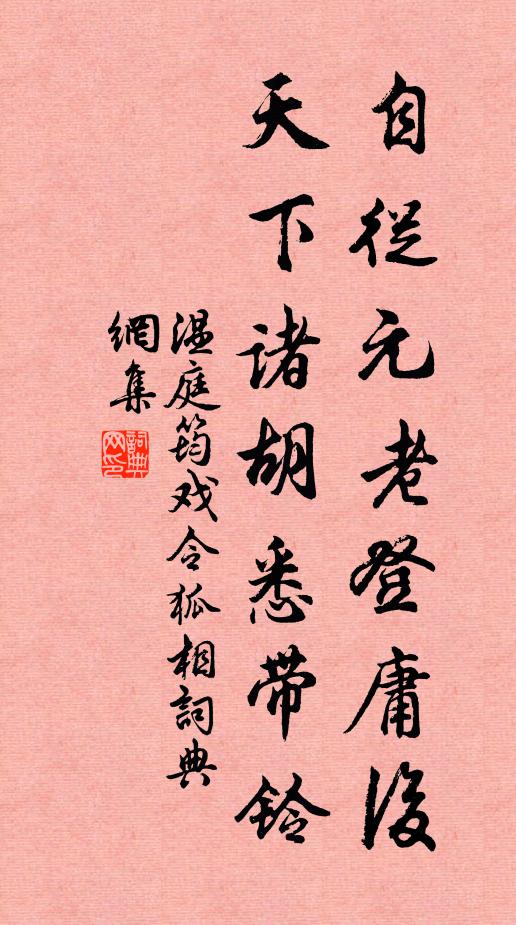 自從元老登庸後
天下諸胡悉帶鈴
温庭筠戏令狐相詞典
網集
詞典
网印